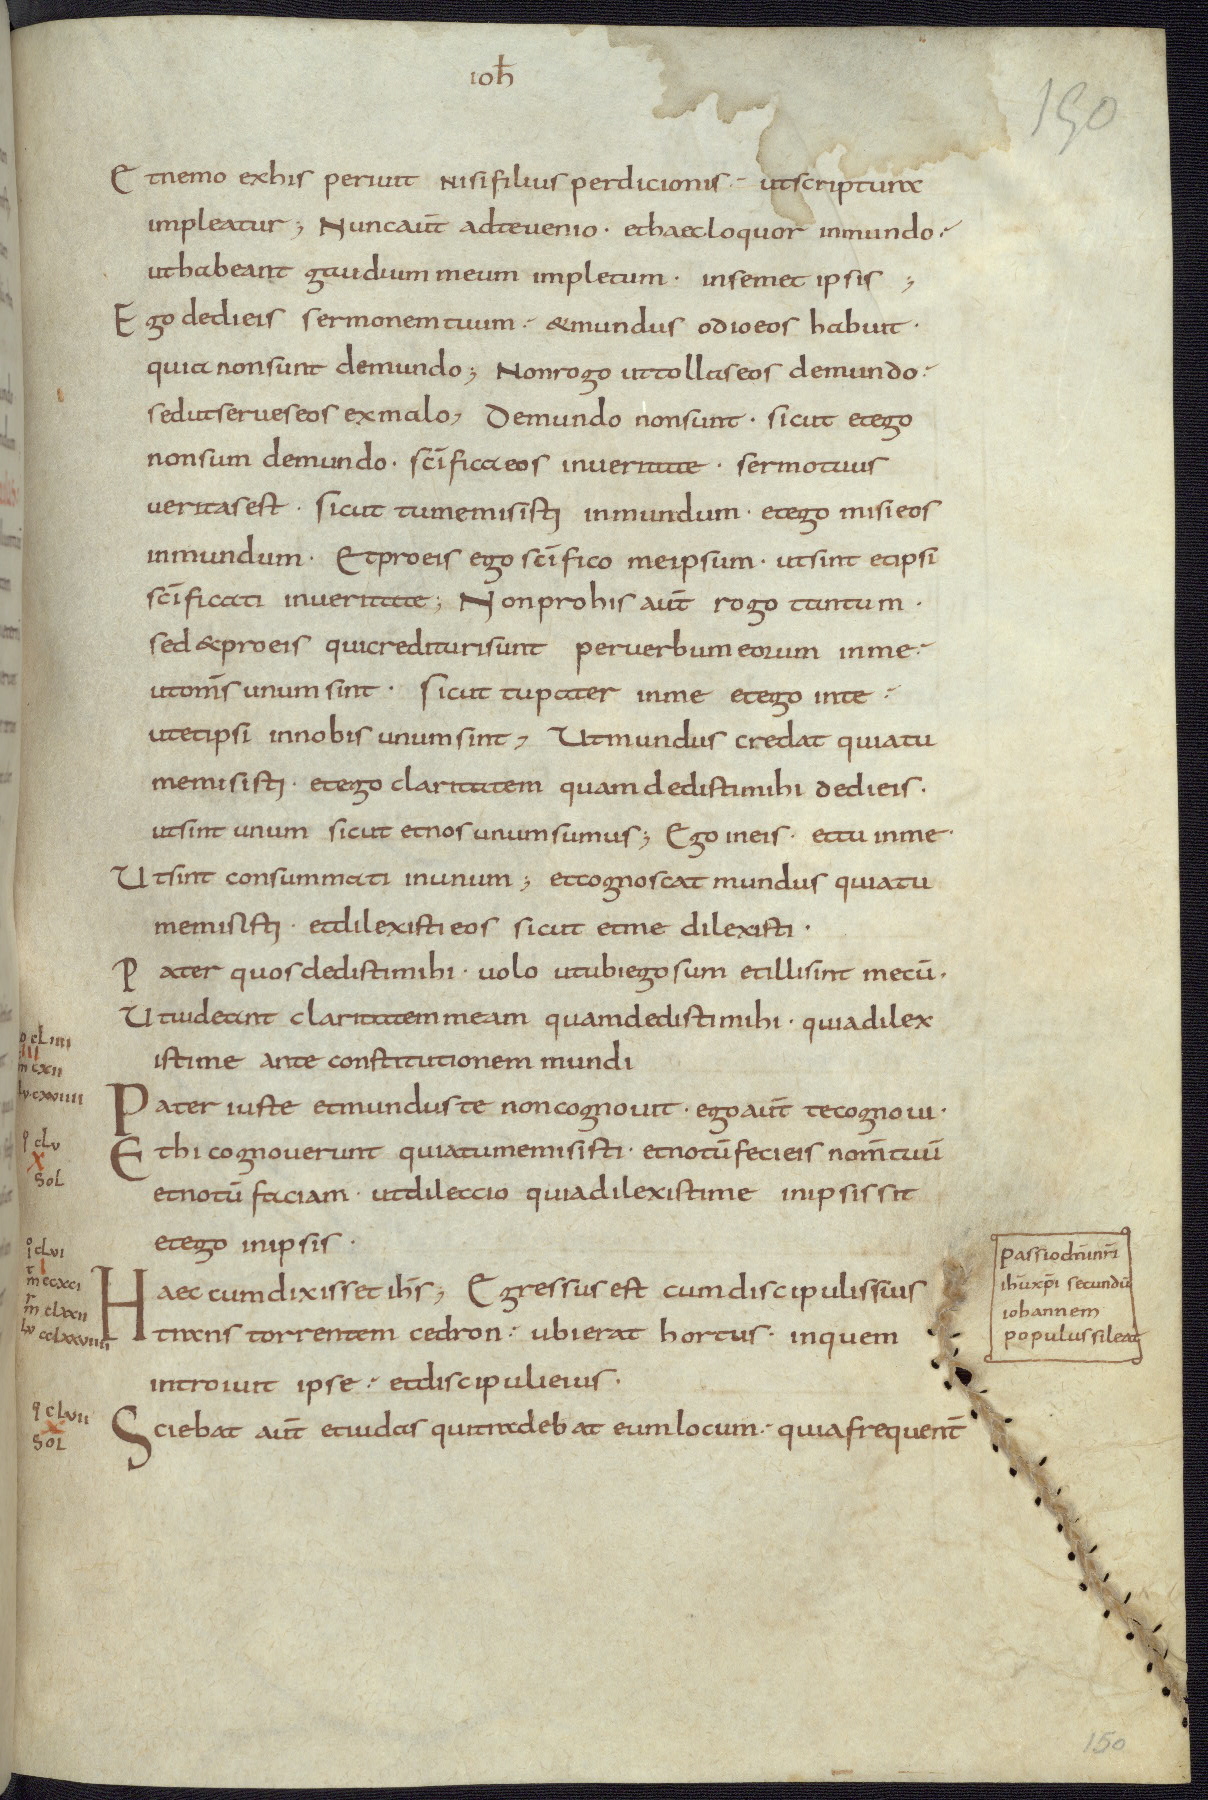 ioħ
190
Et nemo ex his periuit nisi filius perdicionis ut scriptura
impleatur; Nunc aut̄ ad te uenio · et haec loquor in mundo
ut habeant gaudium meum impletum · in semet ipsis ;
Ego dedi eis sermonem tuum & mundus odio eos habuit ·
quia non sunt de mundo; Non rogo ut tollas eos de mundo
sed ut serues eos ex malo, De mundo non sunt · sicut et ego
non sum de mundo · sc̄ifica eos in ueritate · sermo tuus
ueritas est · sicut tu me misisti in mundum · et ego misi eos
in mundum · Et pro eis ego sc̄ifico me ipsum · ut sint et ipsi
sc̄ificati in ueritate; Non pro his aut̄ rogo tantum ·
sed & pro eis qui credituri sunt per uerbum eorum in me
ut om̄s unum sint · sicut tu pater in me et ego in te
ut et ipsi in nobis unum sint, Ut mundus credat quia tu
me misisti · et ego claritatem quam dedisti mihi dedi eis ·
ut sint unum sicut et nos unum sumus; Ego in eis · et tu in me ·
Ut sint consummati in unum; et cognoscat mundus quia tu
me misisti · et dilexisti eos sicut et me dilexisti ·
Pater quos dedisti mihi · uolo ut ubi ego sum et illi sint mecū ·
Ut uideant claritatem meam quam dedisti mihi · quia dilex
isti me ante constitutionem mundi
Pater iuste et mundus te non cognouit · ego aut̄ te cognoui ·
Et hi cognouerunt quia tu me misisti · et notū feci eis nom̄ tuū
et notū faciam · ut dileccio qua dilexisti me in ipsis sit
et ego in ipsis ·
Haec cum dixisset ih̄s; Egressus est cum discipulis suis
trans torrentem cedron ubi erat hortus · in quem
introiuit ipse et discipuli eius ·
Sciebat aut̄ et iudas qui tradebat eum locum quia frequent̄
cLiiii
III
m cxii
Lu cxuiiii
cLu
X
SoL
cLui
I
m ccxci
m clxxii
Lu cclxxuiiii
cLuii
X
SoL
Passio dn̄i nr̄i
ihū xp̄i secundū
iohannem
populus sileat
150